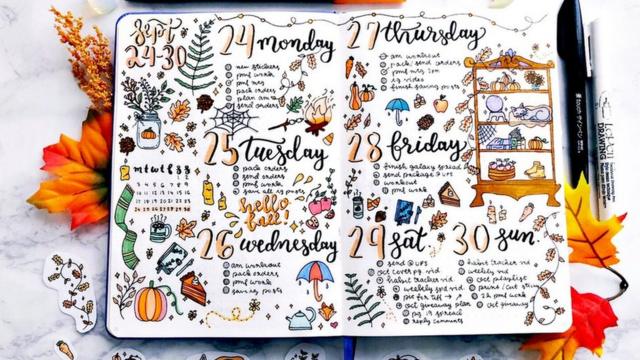 Sept
24-30
24 monday
new stickers
pmf work
pmf mtg
pack orders
plan am
send orders
25 tuesday
pack orders
send orders
pmf work
save all ig posts
hello
fall!
26 wednesday
am workout
pack orders
pmf work
saving posts
m t w t f s s
27 thursday
am workout
pack/send orders
pmf mtg 1pm
ig video
finish saving posts
28 friday
finish galaxy spread
send package @ UPS
workout
29 sat
send @ UPS
oct cover pg vid
habit tracker vid
weekly spd vid
oct giveaway plan
pg 19 spread
reply comments
30 sun.
habit tracker vid
weekly vid
oct playlist
2h pmf work
oct giveaway